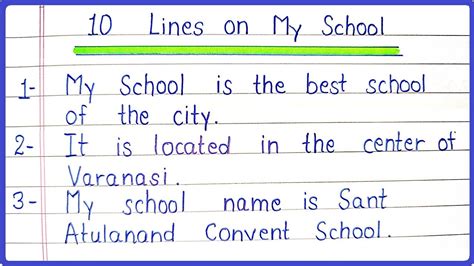 10 Lines on My School
1- My School is the best school
of the city.
2- It is located in the center of
Varanasi.
3- My school name is Sant
Atulanand Convent School.